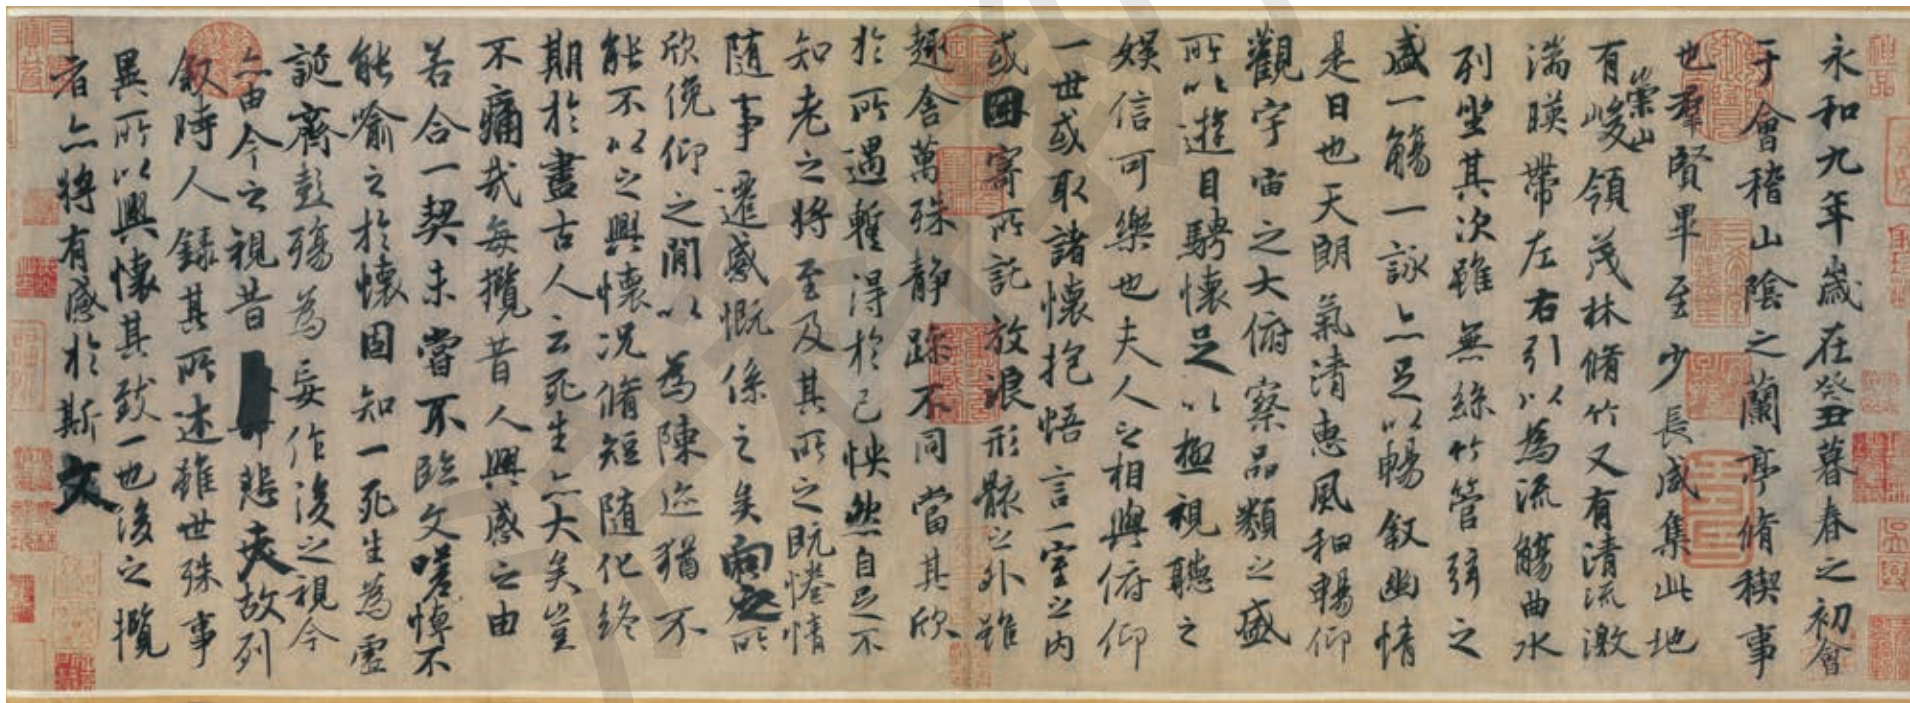 神品
永和九年歲在癸丑暮春之初會
于會稽山陰之蘭亭脩稧事
也羣賢畢至少長咸集此地
有崇山峻領茂林脩竹又有清流激
湍暎帶左右引以為流觴曲水
列坐其次雖無絲竹管弦之
盛一觴一詠亦足以暢叙幽情
是日也天朗氣清惠風和暢仰
觀宇宙之大俯察品類之盛
所以遊目騁懷足以極視聽之
娛信可樂也夫人之相與俯仰
一世或取諸懷抱悟言一室之内
或因寄所託放浪形骸之外雖
趣舍萬殊静躁不同當其欣
於所遇暫得於己怏然自足不
知老之將至及其所之既惓情
随事遷感慨係之矣向之所
欣俛仰之閒以為陳迹猶不
能不以之興懷況脩短随化終
期於盡古人云死生亦大矣豈
不痛哉每攬昔人興感之由
若合一契未嘗不臨文嗟悼不
能喻之於懷固知一死生為虛
誕齊彭殤為妄作後之視今
亦由今之視昔悲夫故列
叙時人錄其所述雖世殊事
異所以興懷其致一也後之攬
者亦將有感於斯文